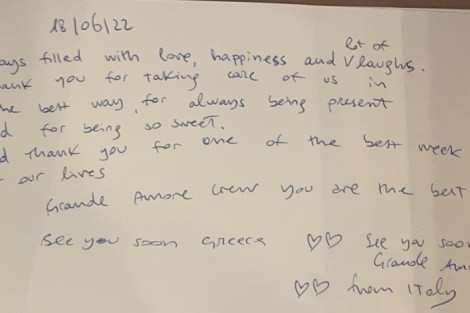 18/06/22
lot of
ays filled with love, happiness and V laughs.
ank you for taking care of us in
he best way, for always being present
d for being so sweet.
d thank you for one of the best week
our lives
Grande Amore crew you are the best
See you soon Greece ♡♡ See you soo
Grande Amo
♡♡ from ITaly